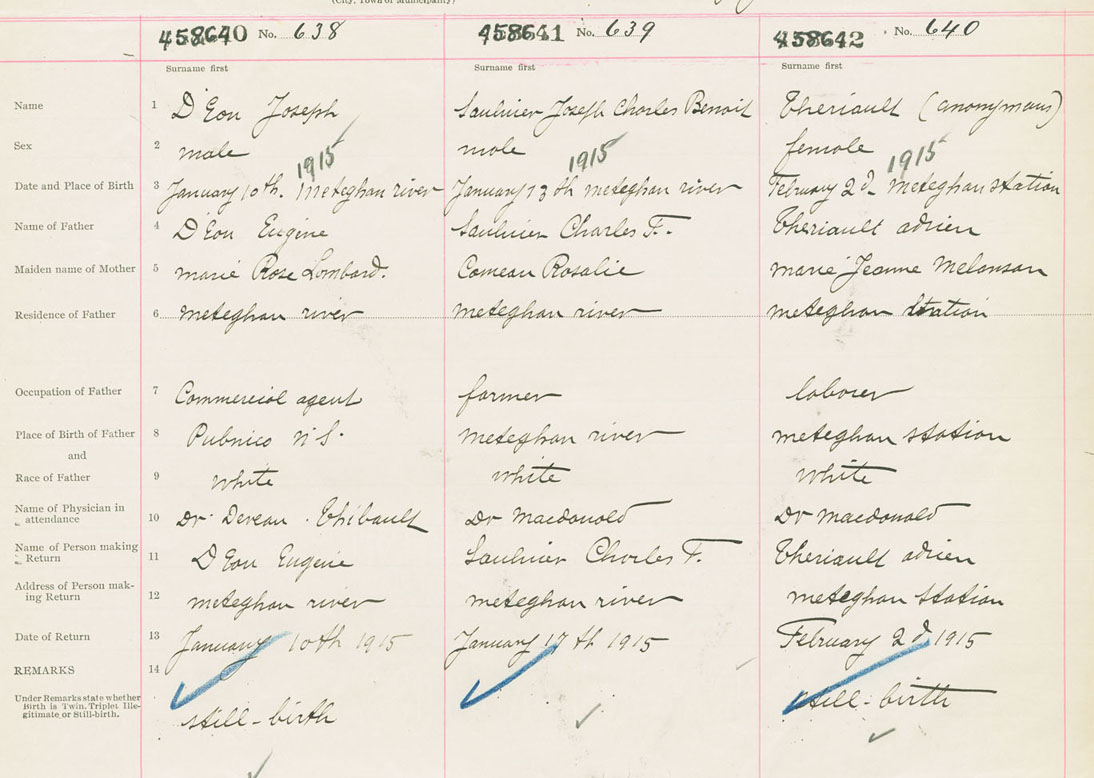 (City, Town or Municipality)
458640 No. 638 458641 No. 639 458642 No. 640
Surname first Surname first Surname first
Name 1 D'Eon Joseph Saulnier Joseph Charles Benoit Theriault (anonymous)
Sex 2 male male female
1915 1915 1915
Date and Place of Birth 3 January 10th. Meteghan river January 13th meteghan river February 2d meteghan station
Name of Father 4 D'Eon Eugine Saulnier Charles F. Theriault adrien
Maiden name of Mother 5 marie Rose Lombard. Comeau Rosalie marie Jeanne Melanson
Residence of Father 6 meteghan river meteghan river meteghan station
Occupation of Father 7 Commercial agent farmer laborer
Place of Birth of Father 8 Pubnico N.S. meteghan river meteghan station
and
Race of Father 9 white white white
Name of Physician in
attendance 10 Dr. Deveau. Thibault Dr Macdonald Dr Macdonald
Name of Person making
Return 11 D'Eon Eugine Saulnier Charles F. Theriault adrien
Address of Person mak-
ing Return 12 meteghan river meteghan river meteghan station
Date of Return 13 January 10th 1915 January 17th 1915 February 2d 1915
REMARKS 14
Under Remarks state whether
Birth is Twin, Triplet Ille-
gitimate or Still-birth.
still-birth still-birth